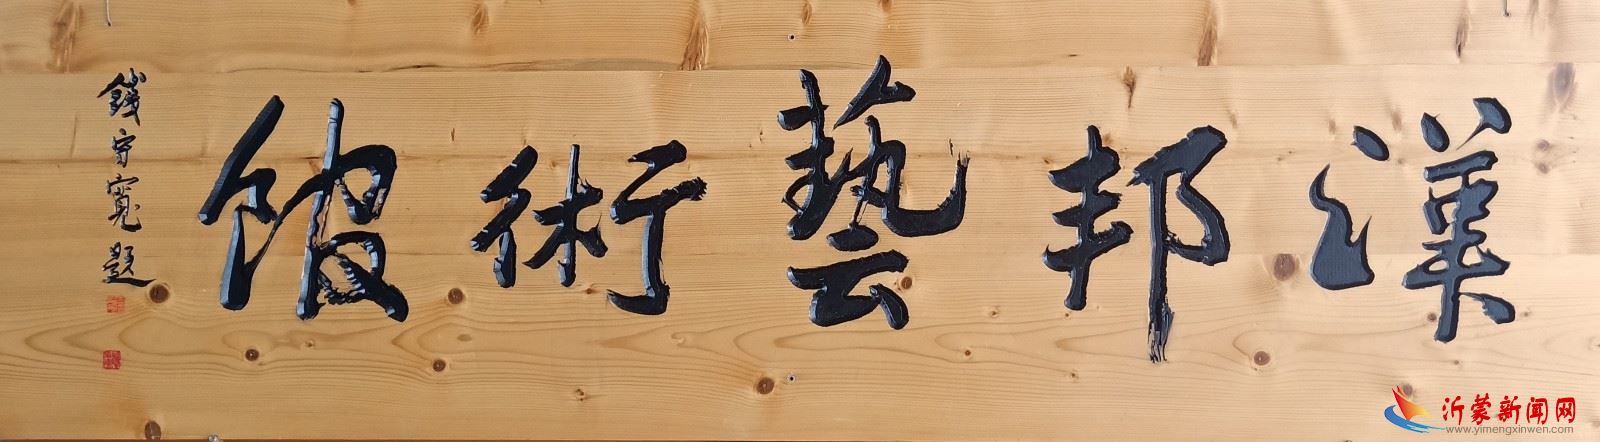 漢邦藝術館
錢守寬題
沂蒙新闻网
www.yimengxinwen.com